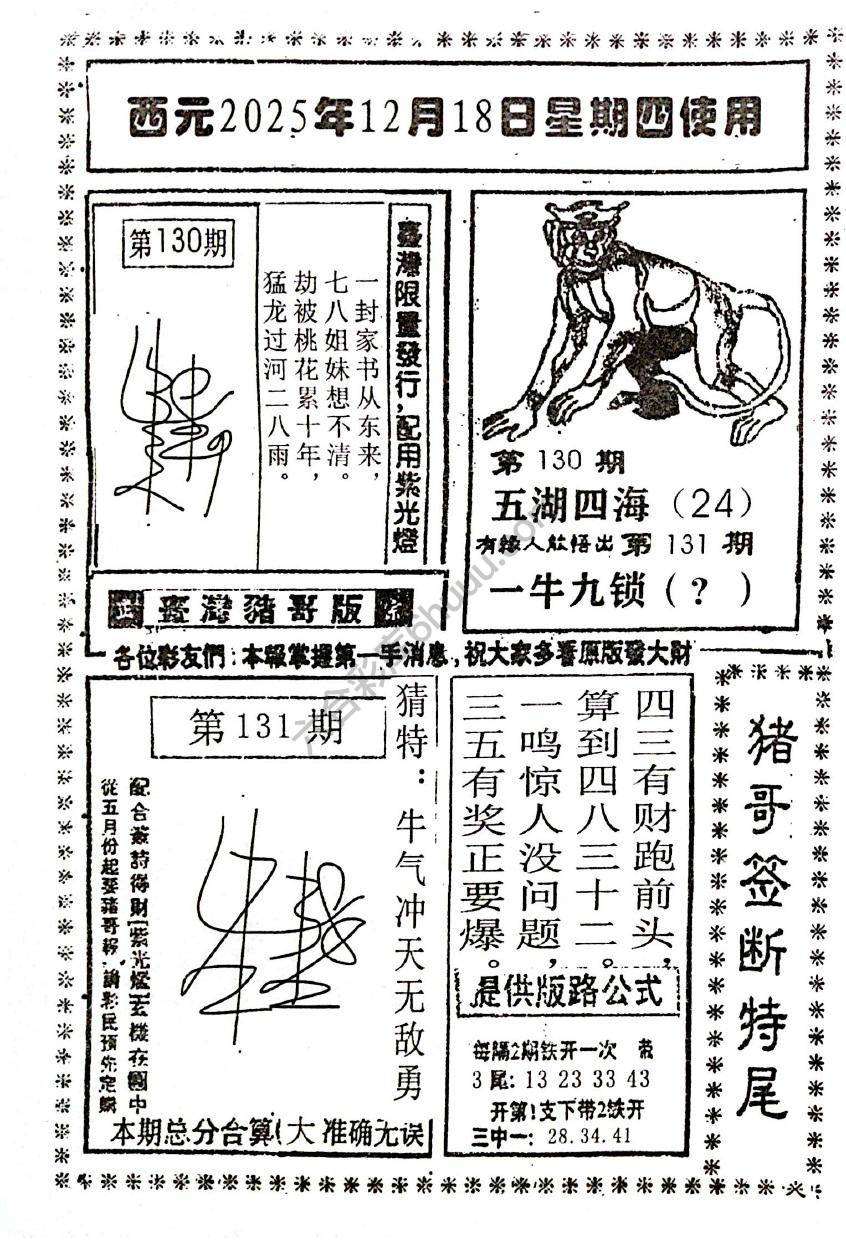 西元2025年12月18日星期四使用
第130期
一封家书从东来，
七八姐妹想不清。
劫被桃花累十年，
猛龙过河二八雨。
臺灣限量發行，配用紫光燈
第130期
五湖四海（24）
有緣人能悟出第131期
一牛九锁（？）
臺灣豬哥版
各位彩友們：本報掌握第一手消息，祝大家多看原版發大財
第131期
猜特：牛气冲天无敌勇
配合簽詩得財（紫光燈）玄機在圖中
從五月份起要豬哥報，請彩民預先定購
本期总分合算（大 准确无误
四三有财跑前头，
算到四八三十二。
一鸣惊人没问题，
三五有奖正要爆。
提供版路公式
每隔2期铁开一次 带
3尾：13 23 33 43
开第1支下带2铁开
三中一：28.34.41
猪哥签断特尾
六合彩库6huuu.com